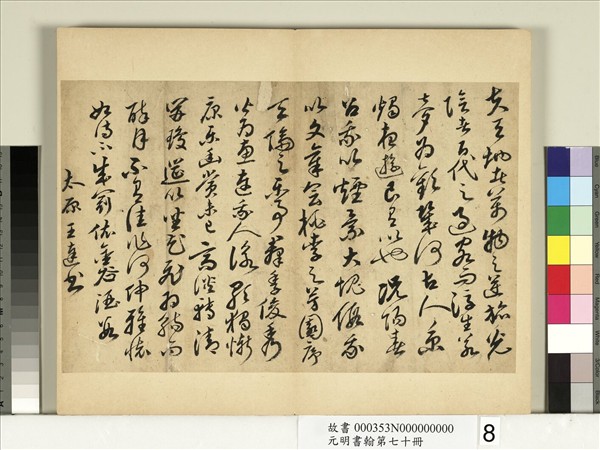 夫天地者萬物之逆旅光
陰者百代之過客而浮生若
夢為歡幾何古人秉
燭夜遊良有以也況陽春
召我以煙景大塊假我
以文章會桃李之芳園序
天倫之樂事群季俊秀
皆為惠連吾人詠歌獨慚
康樂幽賞未已高談轉清
開瓊筵以坐花飛羽觴而
醉月不有佳作何伸雅懷
如詩不成罰依金谷酒數
太原王逹書
故書 000353N000000000
元明書翰第七十冊
8